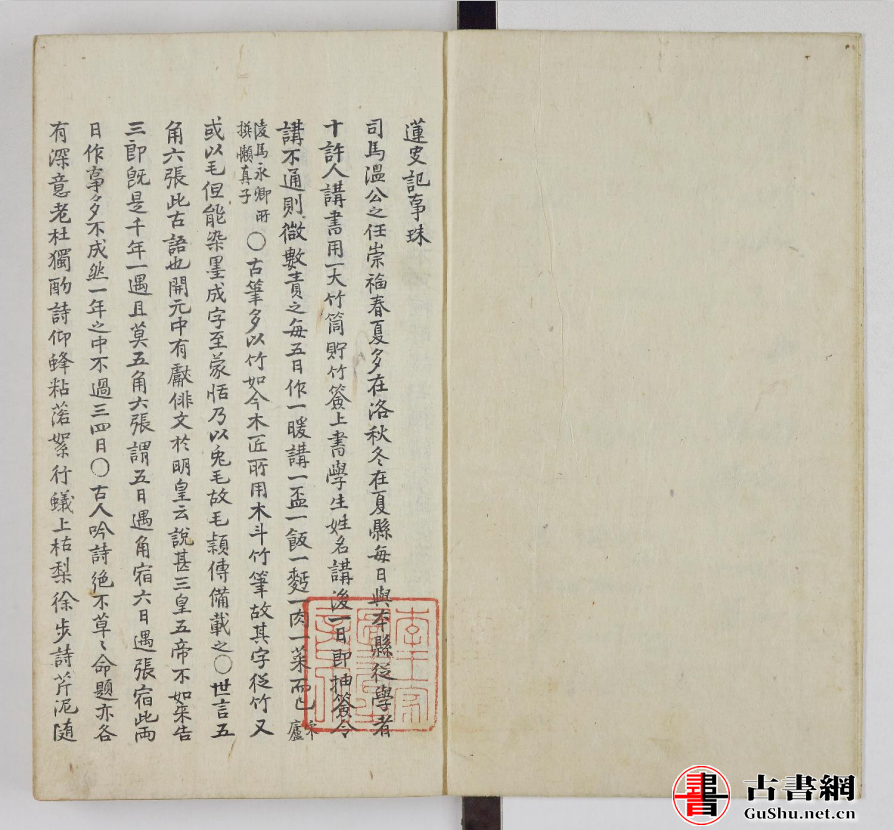 蓮史記事珠
司馬溫公之任崇福春夏多在洛秋冬在夏縣每日與本縣從學者
十許人講書用一大竹筒貯竹簽上書學生姓名講後一日即抽簽令
講不通則微數責之每五日作一暖講一盃一飯一麪一肉一菜而已 宋廬
陵馬永卿所
撰懶真子
○古筆多以竹如今木匠所用木斗竹筆故其字從竹又
或以毛但能染墨成字至蒙恬乃以兔毛故毛穎傳備載之○世言五
角六張此古語也開元中有獻俳文於明皇云說甚三皇五帝不如來告
三郎旣是千年一遇且莫五角六張謂五日遇角宿六日遇張宿此兩
日作事多不成然一年之中不過三四日○古人吟詩絶不草〻命題亦各
有深意老杜獨酌詩仰蜂粘落絮行蟻上枯梨徐步詩芹泥隨
書 古書網
GuShu.net.cn